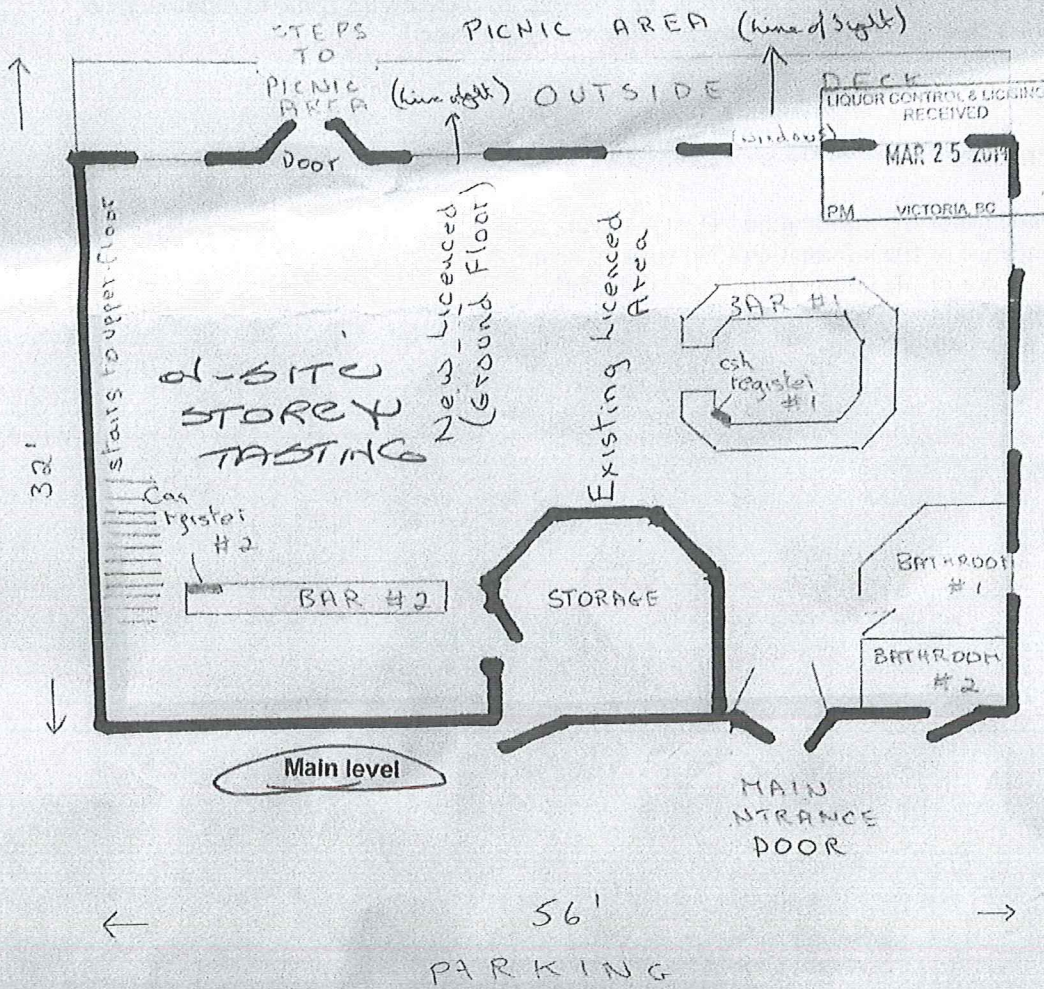 STEPS
TO
PICNIC
AREA
PICNIC AREA (Line of Sight)
(Line of Sight) OUTSIDE
DECK
LIQUOR CONTROL & LICSING
RECEIVED
MAR 25 2014
PM VICTORIA, BC
Door
(windows)
stairs to upper floor
New Licenced
(Ground Floor)
Existing Licenced
Area
BAR #1
csh
register
#1
-SITE
STOREY
TASTING
32'
#2
BAR #2
STORAGE
BATHROOM
#1
BATHROOM
#2
Main level
MAIN
NTRANCE
DOOR
56'
PARKING